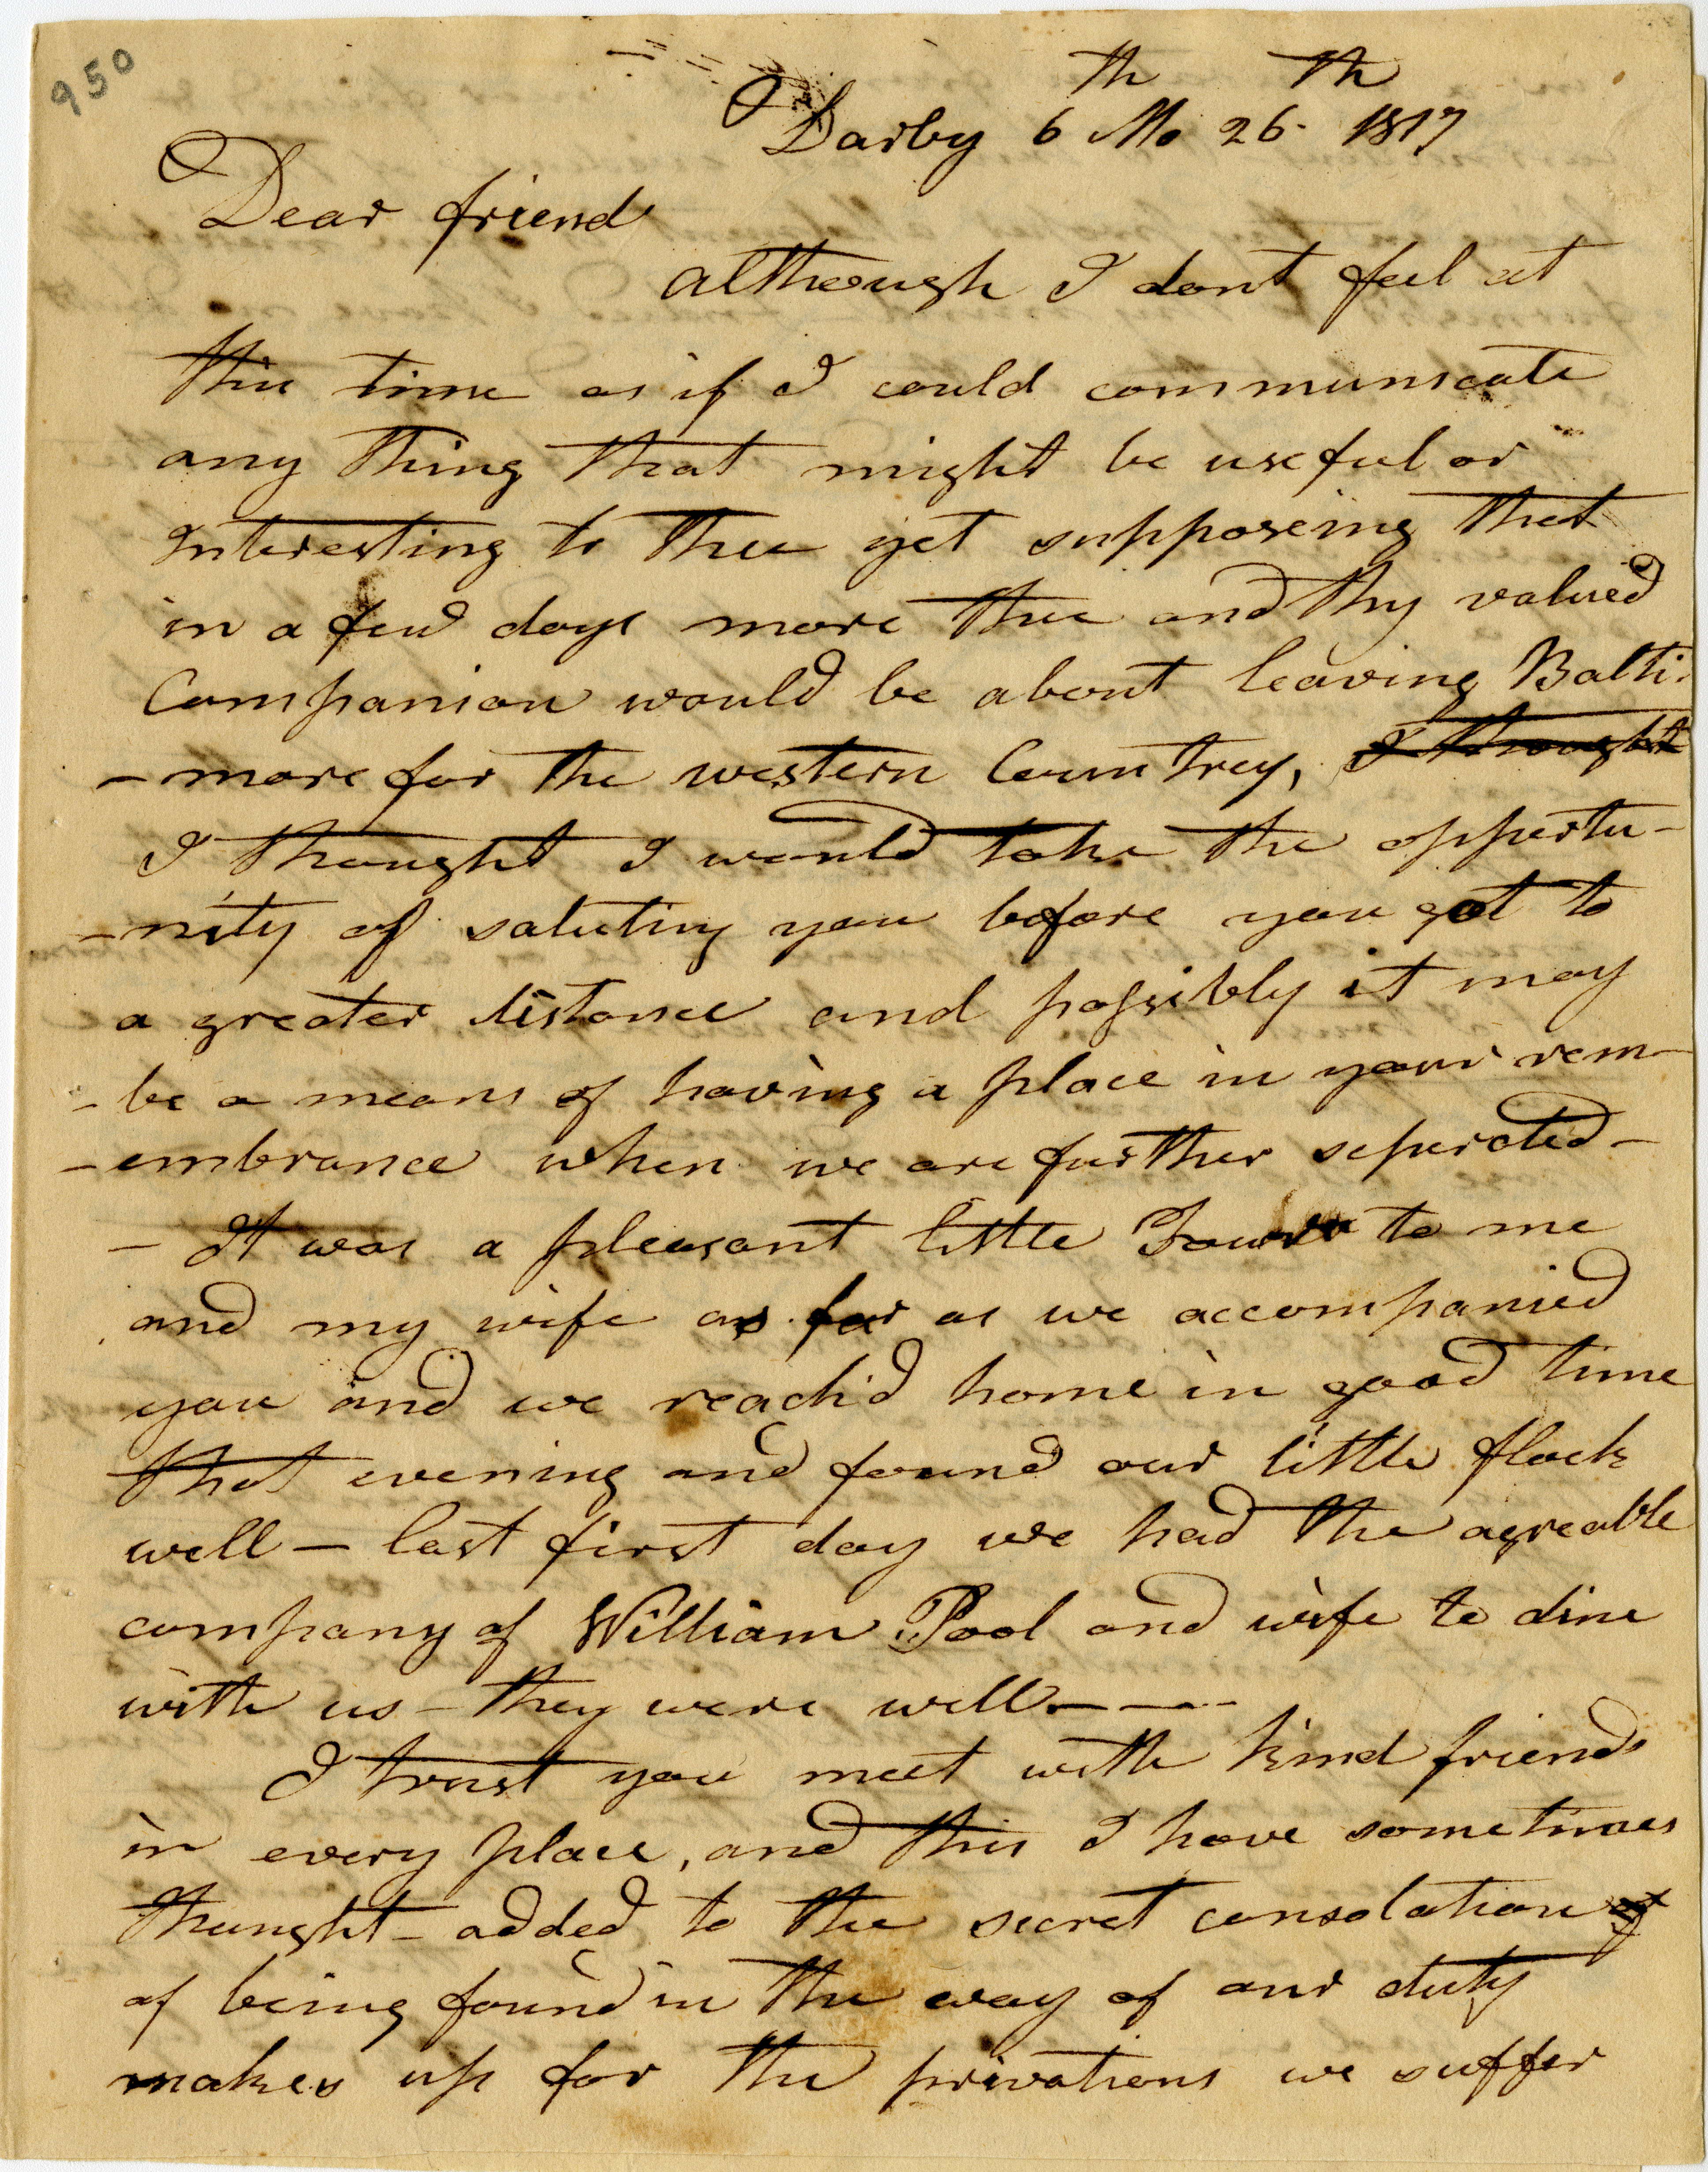 950
Darby 6th Mo 26th 1817
Dear friend
although I dont feel at
this time as if I could communicate
any thing that might be useful or
Interesting to thee yet supposeing that
in a few days more thee and thy valued
Companion would be about leaving Balti-
-more for the western Countrey, I thought
I thought I would take the opportu-
-nity of saluting you before you got to
a greater distance and possibly it may
-be a means of having a place in your rem-
-embrance when we are further seperated-
- It was a pleasant little Tour to me
and my wife as far as we accompanied
you and we reach'd home in good time
that evening and found our little flock
well - last first day we had the agreable
company of William Pool and wife to dine
with us - they were well - - -
I trust you meet with kind friends
in every place, and this I have sometimes
thought - added to the secret consolation of
of being found in the way of our duty
makes up for the privations we suffer